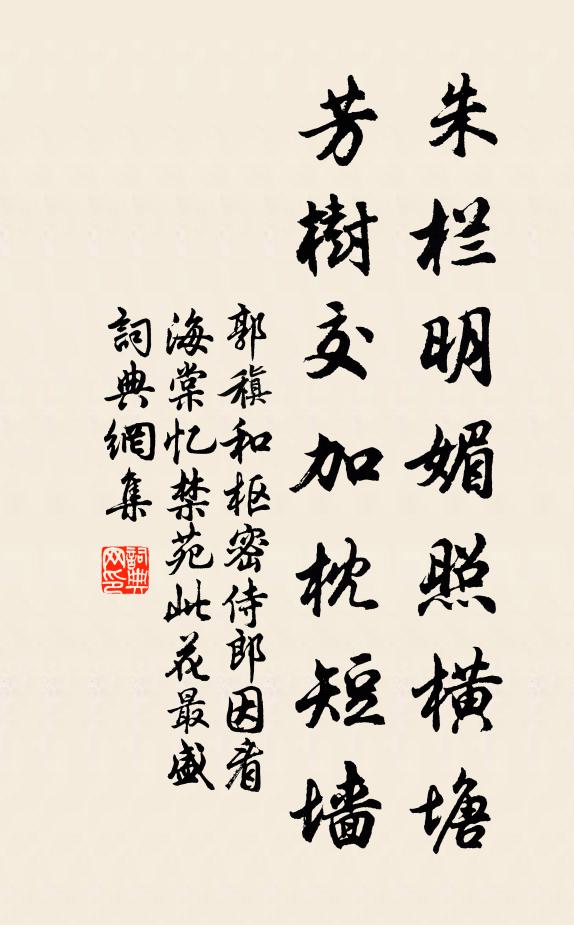 朱栏明媚照横塘
芳樹交加枕短墙
郭稹和枢密侍郎因看
海棠忆禁苑此花最盛
詞典網集
詞典网印